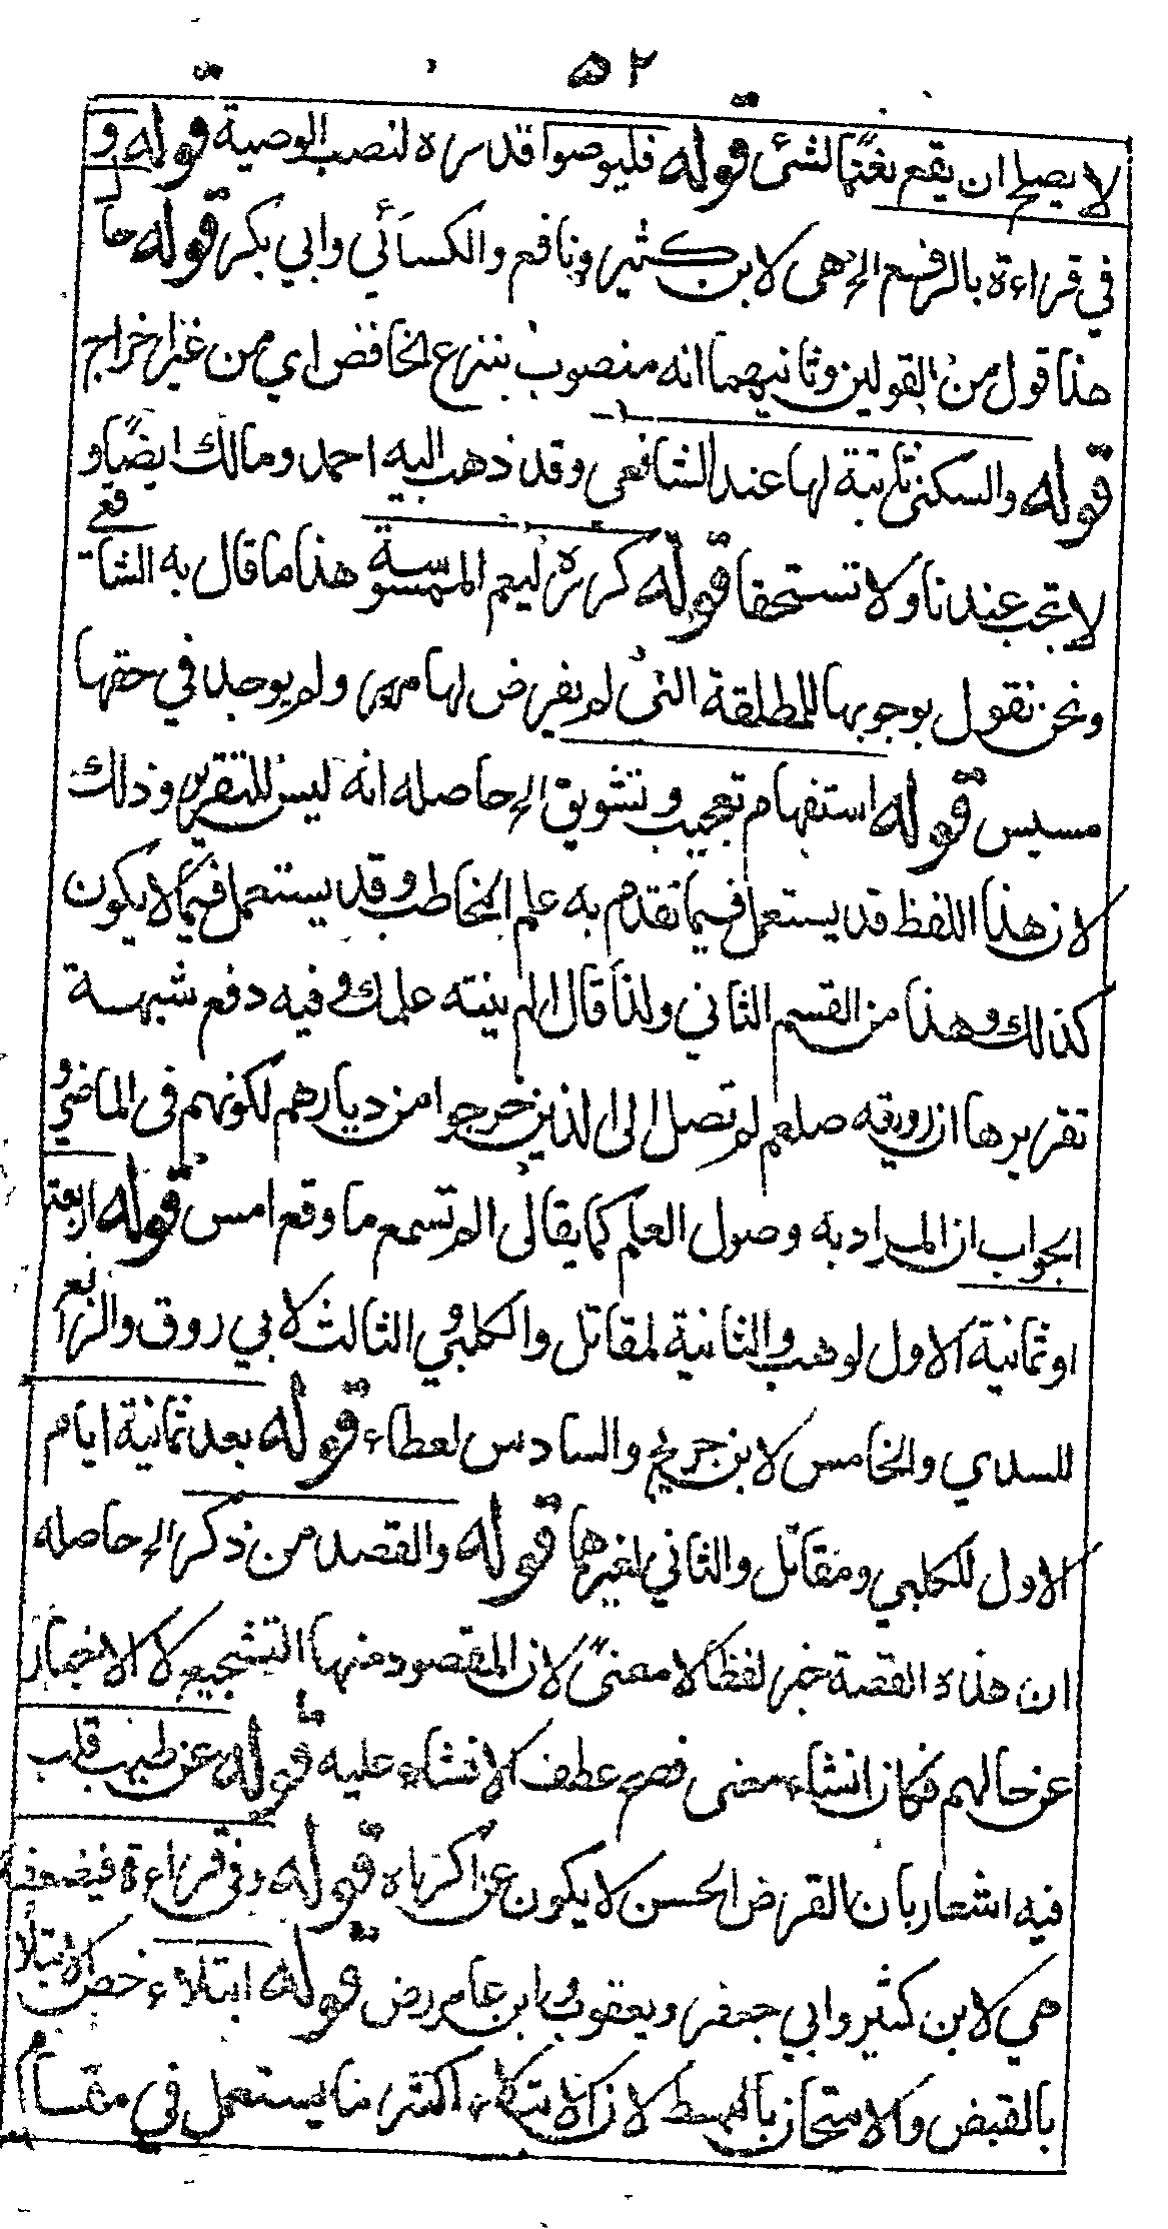 ٥٢
لا يصلح ان يقع نعتا لشئ قوله فليوصوا قدره لنصب الوصية قوله و
في قراءة بالرفع الخ هى لابن كثير ونافع والكسائي وابي بكر قوله حال
هذا قول من القولين وثانيهما انه منصوب بنزع الخافض اي من غير اخراج
قوله والسكنى ثابتة لها عند الشافعى وقد ذهب اليه احمد ومالك ايضا و
لا تجب عندنا ولا تستحقا قوله كرره ليعم الممسوسة هذا ما قال به الشافعي
ونحن نقول بوجوبها للمطلقة التى لم يفرض لها مهر ولم يوجد في حقها
مسيس قوله استفهام تعجيب وتشويق الخ حاصله انه ليس للتقرير وذلك
لان هذا اللفظ قد يستعمل فيما تقدم به علم المخاطب وقد يستعمل فيما لا يكون
كذلك وهذا من القسم الثاني ولذا قال الم ينته علمك وفيه دفع شبهة
تقريرها ان رويته صلعم لم تصل الى الذين خرجوا من ديارهم لكونهم فى الماضي و
الجواب ان المراد به وصول العلم كما يقال الم تسمع ما وقع امس قوله اربعة
او ثمانية الاول لوهب والثانية لمقاتل والكلبي و الثالث لابي روق والرابع
للسدي والخامس لابن جريج والسادس لعطاء قوله بعد ثمانية ايام
الاول للكلبي ومقاتل والثاني لغيرهما قوله والقصد من ذكر الخ حاصله
ان هذه القصة خبر لفظا لا معنى لان المقصود منها التشجيع لا الاخبار
عن حالهم فكان انشاء معنى فصح عطف الانشاء عليه قوله عن طيب قلب
فيه اشعار بان القرض الحسن لا يكون عن اكراه قوله وفى قراءة فيضعفه
هي لابن كثير وابي جعفر ويعقوب وابن عامر رض قوله ابتلاء خص الابتلا
بالقبض والامتحان بالبسط لان الابتلاء اكثر ما يستعمل في مقام